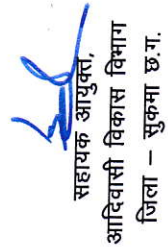 सहायक आयुक्त,
आदिवासी विकास विभाग
जिला – सुकमा छ.ग.